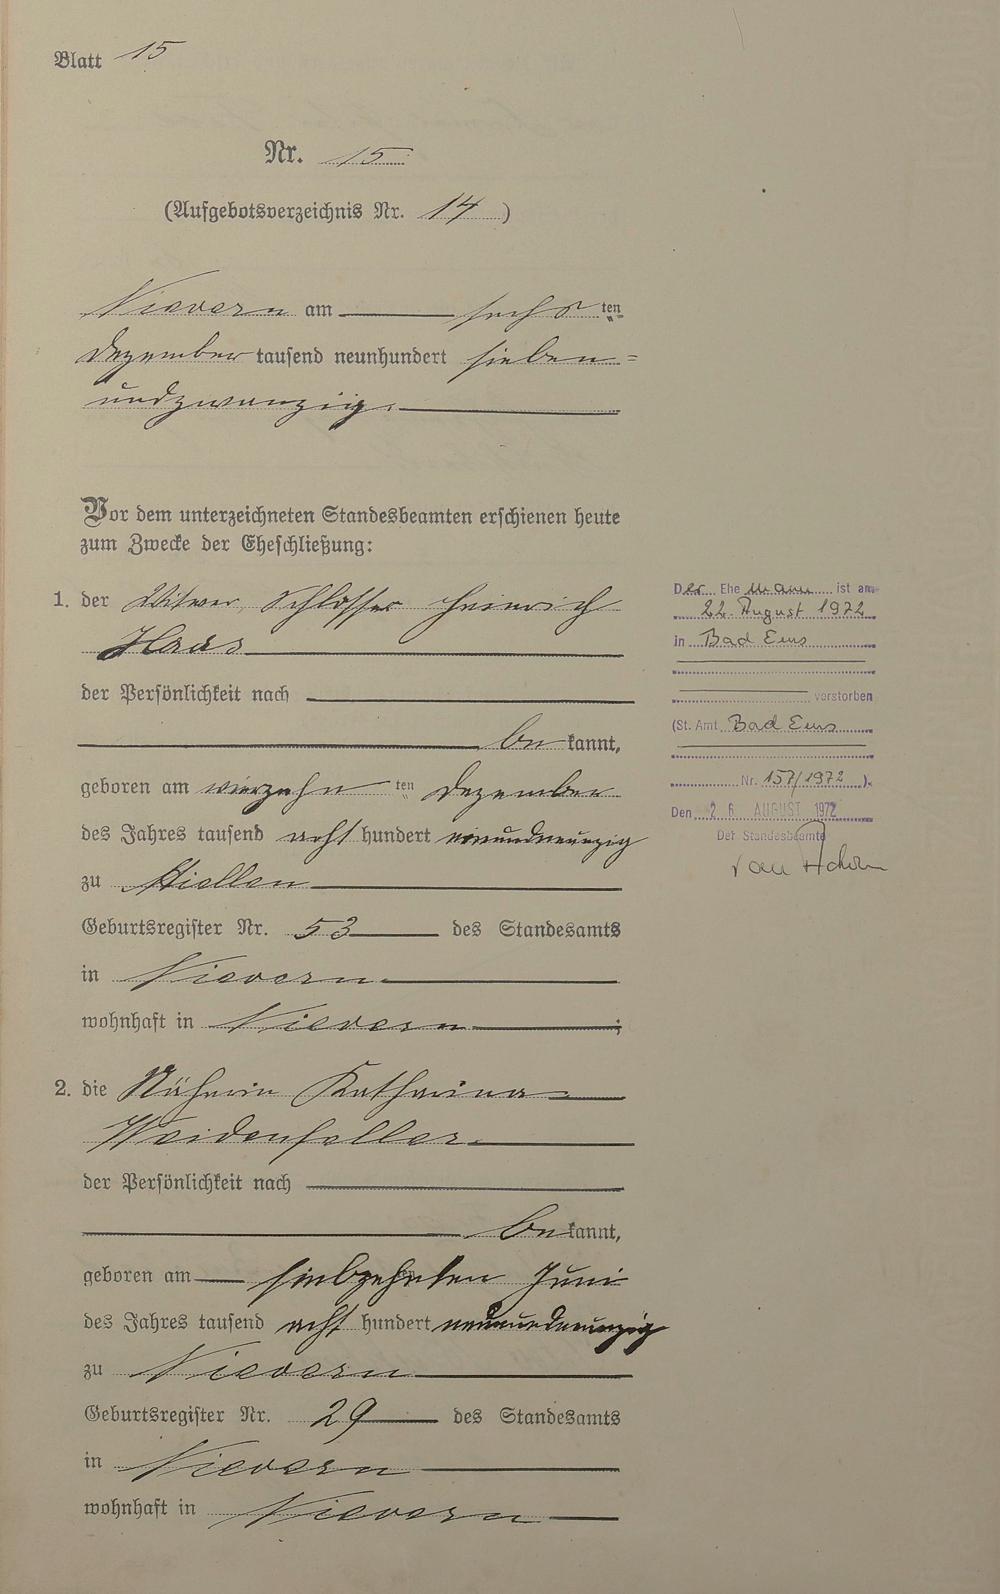 Blatt 15
Nr. 15
(Aufgebotsverzeichnis Nr. 14)
Nievern am sechs ten
Dezember tausend neunhundert sieben=
undzwanzig.
Vor dem unterzeichneten Standesbeamten erschienen heute
zum Zwecke der Eheschließung:
1. der Witwer, Schlosser Heinrich
Haas
der Persönlichkeit nach
be kannt,
geboren am vierzehn ten Dezember
des Jahres tausend acht hundert
zu
Geburtsregister Nr. 53 des Standesamts
in Nievern
wohnhaft in Nievern ;
2. die Näherin Katharina
Weidenfeller
der Persönlichkeit nach
be kannt,
geboren am siebzehnten Juni
des Jahres tausend acht hundert neunundneunzig
zu Nievern
Geburtsregister Nr. 29 des Standesamts
in Nievern
wohnhaft in Nievern
Der Ehe mann ist am
22. August 1972
in Bad Ems
verstorben
(St. Amt Bad Ems
Nr. 157/1972 ).
Den 26. AUGUST 1972
Der Standesbeamte